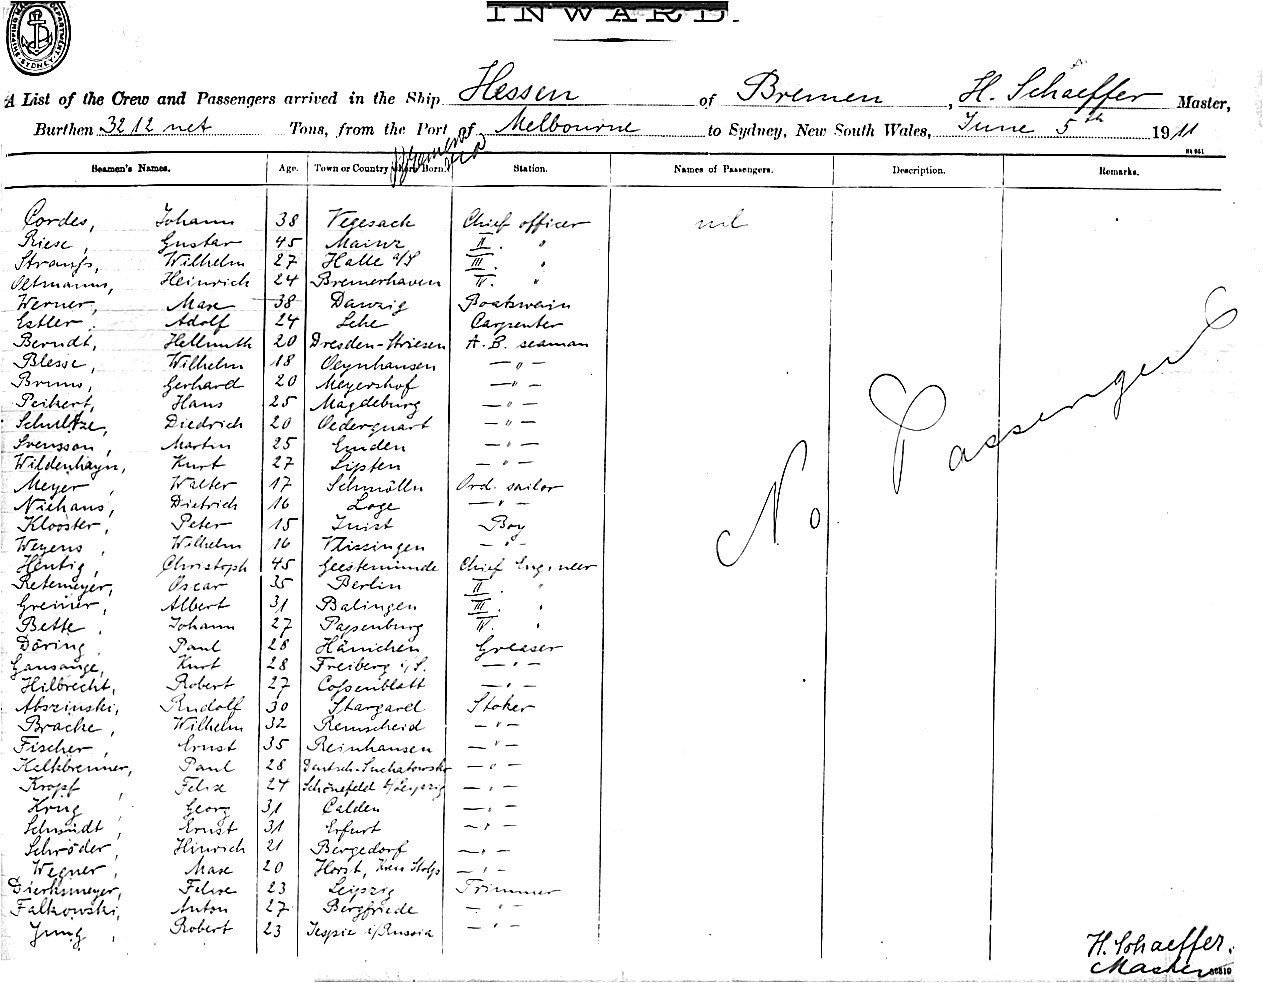 SHIPPING MASTER'S DEPARTMENT SYDNEY
INWARD.
A List of the Crew and Passengers arrived in the Ship Hessen of Bremen, H. Schaeffer Master,
Burthen 3212 net Tons, from the Port of Melbourne to Sydney, New South Wales, June 5th 1911
Seamen's Names. Age. Town or Country where Born. Station. Names of Passengers. Description. Remarks.
Cordes, Johann 38 Vegesack Chief officer nil
Riese, Gustav 45 Mainz II. "
Wilhelm 27 Halle a/S III. "
Oltmanns, Heinrich 24 Bremerhaven IV. "
Werner, Max 38 Danzig Boatswain
Estler. Adolf 24 Lehe Carpenter
Berndt, Hellmuth 20 Dresden-Striesen A. B. seaman
Blesse, Wilhelm 18 Oeynhausen — " —
Bruns, Gerhard 20 Meyershof — " —
Peikert, Hans 25 Magdeburg — " —
Schultze, Diedrich 20 Oederquart — " —
Svensson, Martin 25 Emden — " —
Wildenhayn, Kurt 27 Lipten — " —
Meyer, Walter 17 Schmölln Ord. sailor
Niehaus, Dietrich 16 Loge — " —
Klooster, Peter 15 Juist Boy
Weyens, Wilhelm 16 Vlissingen — " —
Hentig, Christoph 45 Geestemünde Chief Engineer
Retemeyer, Oscar 35 Berlin II. "
Greiner, Albert 31 Balingen III. "
Bette, Johann 27 Papenburg IV. "
Döring, Paul 28 Hänichen Greaser
Gansauge, Kurt 28 Freiberg i/S. — " —
Hilbrecht, Robert 27 Cossenblatt — " —
Abszinski, Rudolf 30 Stargard Stoker
Brache, Wilhelm 32 Remscheid — " —
Fischer, Ernst 35 Reinhausen — " —
Helkbrenner, Paul 28 — " —
Kropf, Felix 24 Schönefeld b/Leipzig — " —
Krug, Georg 31 Calden — " —
Schmidt, Ernst 31 Erfurt — " —
Schröder, Hinrich 21 Bergedorf — " —
Wegner, Max 20 Horst, Kreis Stolp — " —
Dierksmeyer, Felix 23 Leipzig Trimmer
Falkowski, Anton 27 Bergfriede — " —
Jung, Robert 23 i/Russia — " —
No Passengers
H. Schaeffer.
Master